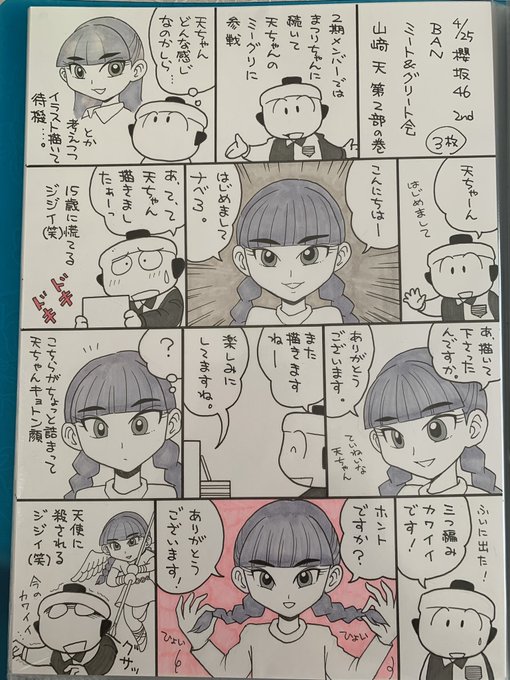 4/25 櫻坂46 2nd
BAN
ミート&グリート会
山﨑 天 第2部の巻
3枚
2期メンバーでは
まつりちゃんに
続いて
天ちゃんの
ミーグリに
参戦
天ちゃん
どんな感じ
なのかしら…
とか
考えつつ
イラスト描いて
待機…。
天ちゃーん
はじめまして
こんにちはー
はじめまして
ナベさん。
あ、て、て
天ちゃん
描きまし
たぁーっ
15歳に慌てる
ジジイ(笑)
ドキ
ドキ
あ、描いて
下さった
んですか。
ありがとう
ございます。
ていねいな
天ちゃん
また
描きます
ねー
楽しみに
してますね。
?
こちらがちょっと詰まって
天ちゃんキョトン顔
ふいに出た!
三つ編み
カワイイ
です!
ホント
ですか?
ありがとう
ございます!
ひょい
ひょい
天使に
殺される
ジジイ(笑)
今の
カワイイ
グサッ